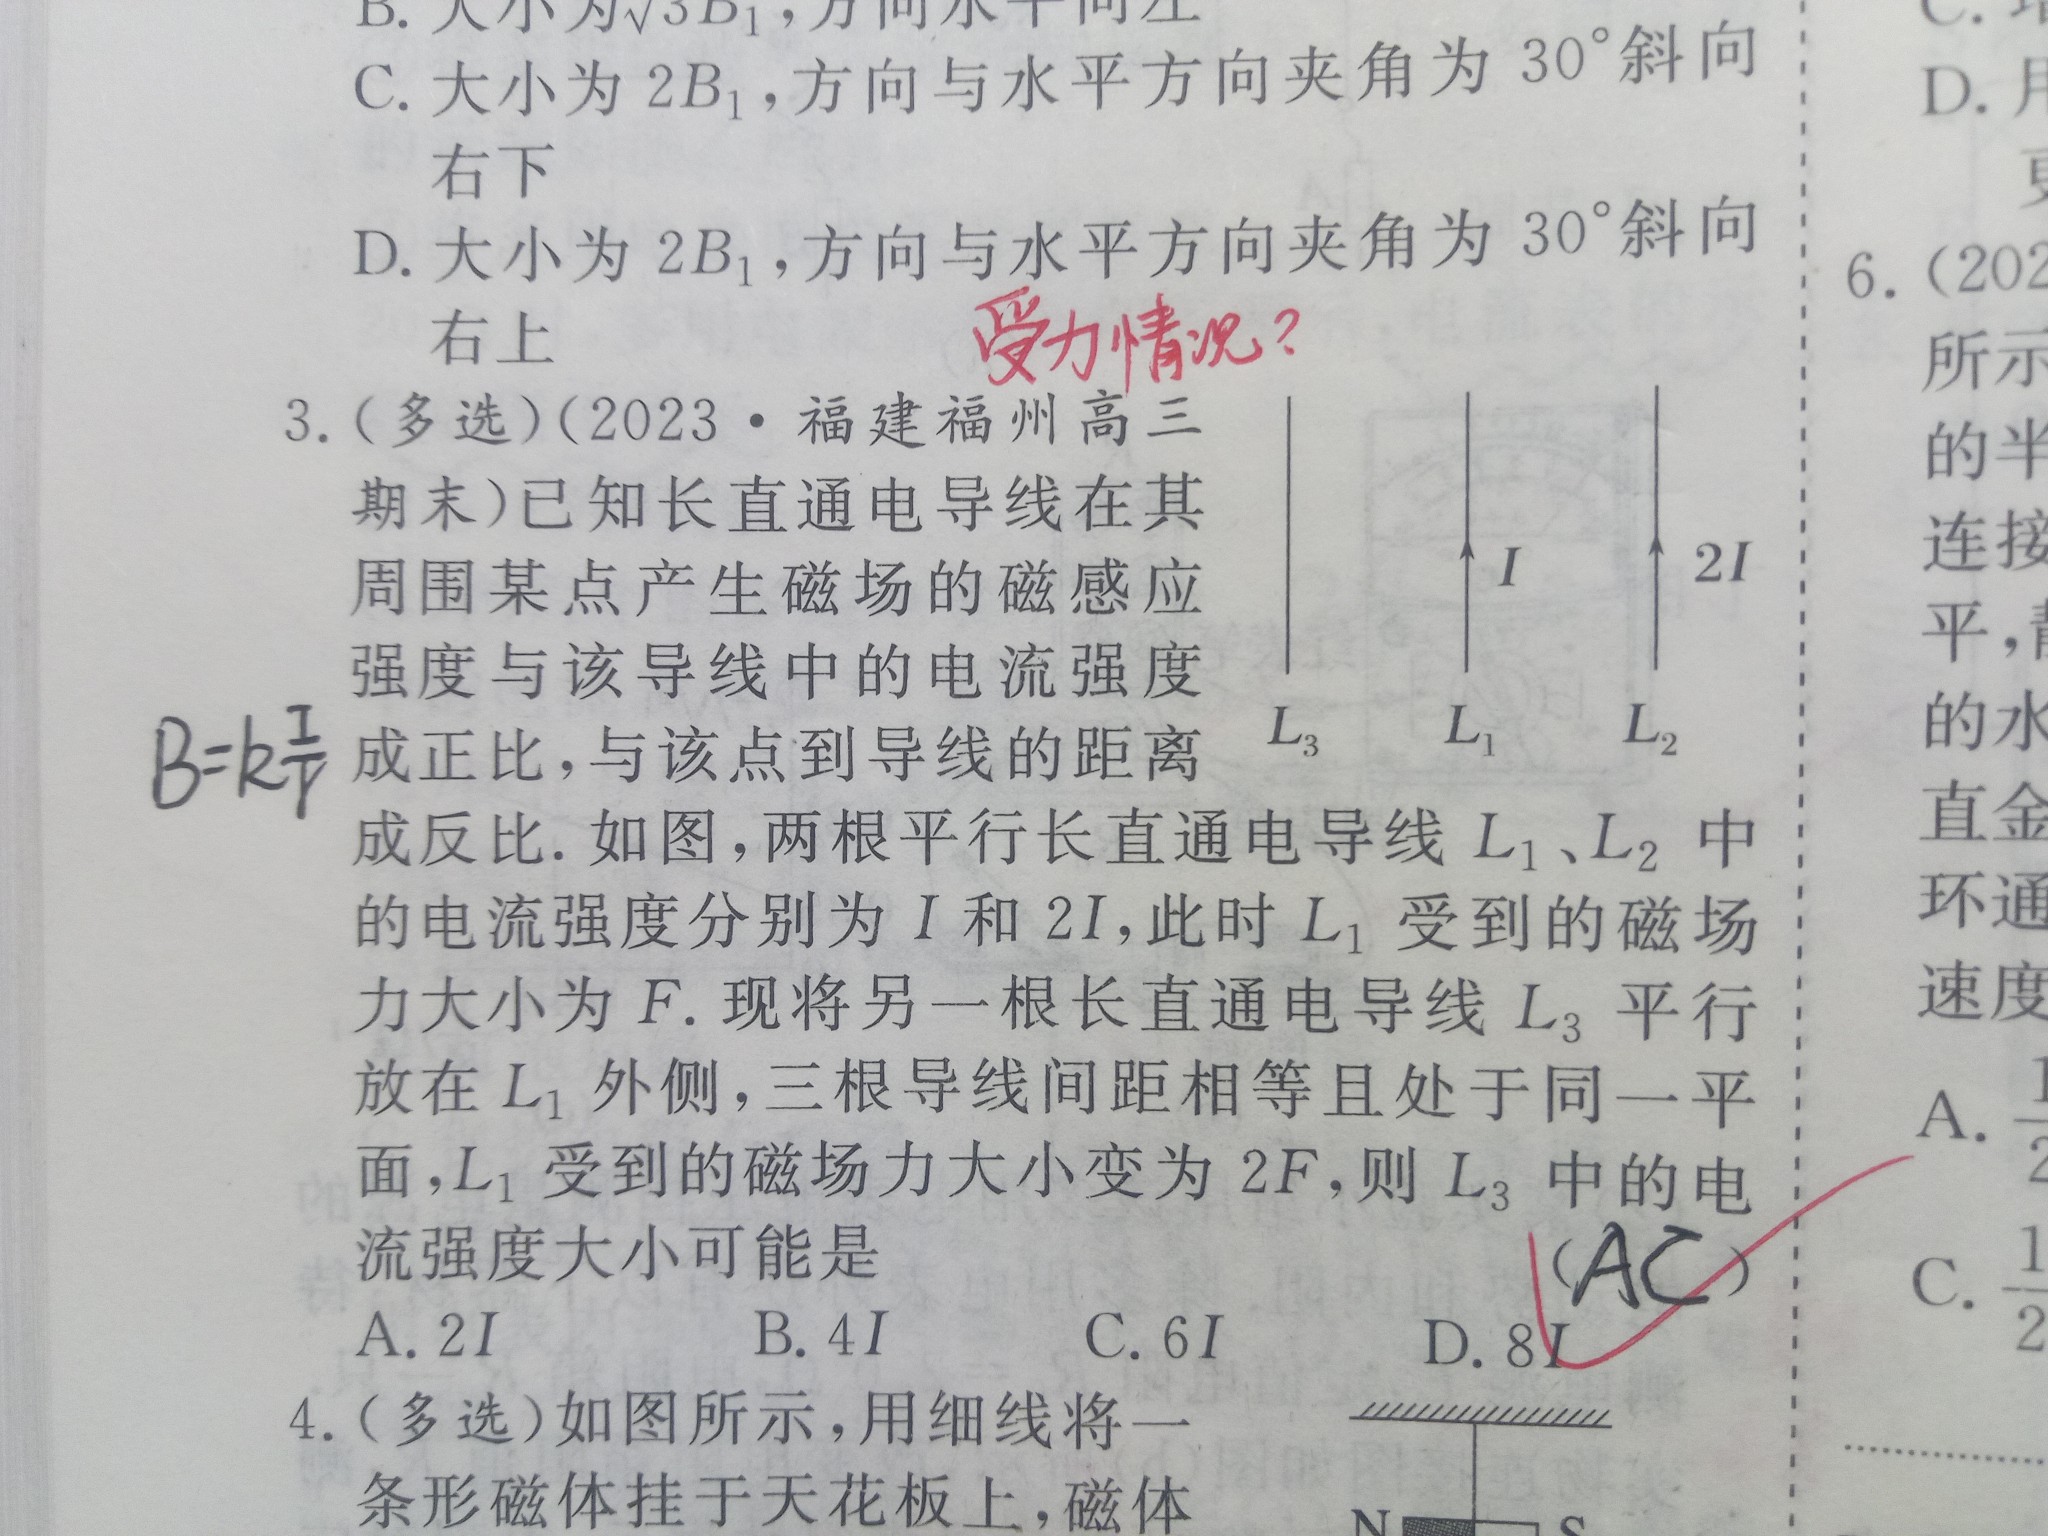 B. 大小为√3B₁,方向水平向左
C. 大小为 2B₁,方向与水平方向夹角为 30°斜向
右下
D. 大小为 2B₁,方向与水平方向夹角为 30°斜向
右上
受力情况?
3. (多选)(2023·福建福州高三
期末)已知长直通电导线在其
周围某点产生磁场的磁感应
强度与该导线中的电流强度
成正比,与该点到导线的距离
成反比. 如图,两根平行长直通电导线 L₁、L₂ 中
的电流强度分别为 I 和 2I,此时 L₁ 受到的磁场
力大小为 F. 现将另一根长直通电导线 L₃ 平行
放在 L₁ 外侧,三根导线间距相等且处于同一平
面,L₁ 受到的磁场力大小变为 2F,则 L₃ 中的电
流强度大小可能是
(AC)
A. 2I B. 4I C. 6I D. 8I
I 2I
L₃ L₁ L₂
B=k I/r
4. (多选)如图所示,用细线将一
条形磁体挂于天花板上,磁体
N S
C.
D. 用
6. (202
所示
的半
连接
平,
的水
直金
环通
速度
A. 1/2
C. 1/2